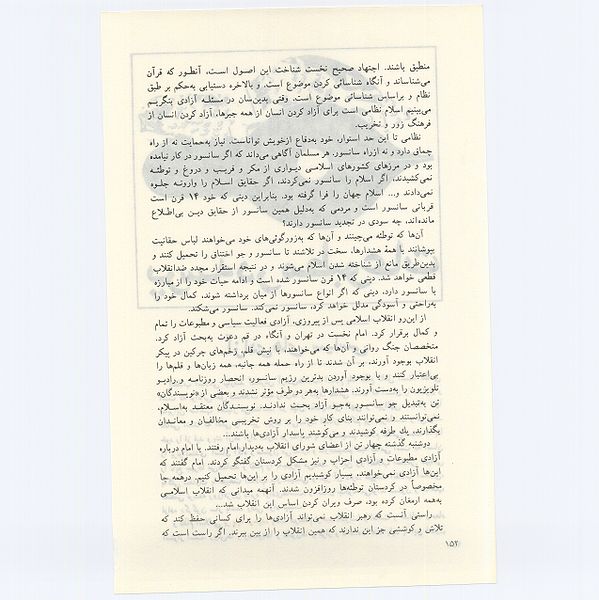 منطبق باشند. اجتهاد صحیح نخست شناخت این اصول است، آنطور که قرآن
می‌شناساند و آنگاه شناسائی کردن موضوع است. و بالاخره دستیابی به‌حکم بر طبق
نظام و براساس شناسائی موضوع است. وقتی بدین‌سان در مسئله آزادی بنگریم
می‌بینیم اسلام نظامی است برای آزاد کردن انسان از همه جبرها، آزاد کردن انسان از
فرهنگ زور و تخریب.
نظامی تا این حد استوار، خود به‌دفاع ازخویش تواناست. نیاز به‌حمایت نه از راه
چماق دارد و نه ازراه سانسور. هر مسلمان آگاهی می‌داند که اگر سانسور در کار نیامده
بود و در مرزهای کشورهای اسلامی دیواری از مکر و فریب و دروغ و توطئه
نمی‌کشیدند، اگر اسلام را سانسور نمی‌کردند، اگر حقایق اسلام را وارونه جلوه
نمی‌دادند و... اسلام جهان را فرا گرفته بود. بنابراین دینی که خود ۱۴ قرن است
قربانی سانسور است و مردمی که به‌دلیل همین سانسور از حقایق دیـن بی‌اطلاع
مانده‌اند، چه سودی در تجدید سانسور دارند؟
آن‌ها که توطئه می‌چینند و آن‌ها که به‌زورگوئی‌های خود می‌خواهند لباس حقانیت
بپوشانند با همهٔ هشدارها، سخت در تلاشند تا سانسور و جو اختناق را تحمیل کنند و
بدین‌طریق مانع از شناخته شدن اسلام می‌شوند و در نتیجه استقرار مجدد ضدانقلاب
قطعی خواهد شد. دینی که ۱۴ قرن سانسور شده است و ادامه حیات خود را از مبارزه
با سانسور دارد، دینی که اگر انواع سانسورها از میان برداشته شوند، کمال خود را
به‌راحتی و آسودگی مدلل خواهد کرد، سانسور نمی‌کند. سانسور می‌شکند.
از این‌رو انقلاب اسلامی پس از پیروزی، آزادی فعالیت سیاسی و مطبوعات را تمام
و کمال برقرار کرد. امام نخست در تهران و آنگاه در قم دعوت به‌بحث آزاد کرد.
متخصصان جنگ روانی و آن‌ها که می‌خواهند، با نیش قلم، زخم‌های چرکین در پیکر
انقلاب بوجود آورند، بر آن شدند تا از راه حمله همه جانبه، همه زبان‌ها و قلم‌ها را
بی‌اعتبار کنند و با بوجود آوردن بدترین رژیم سانسور، انحصار روزنامه و رادیـو
تلویزیون را به‌دست آورند. هشدارها به‌هر دو طرف مؤثر نشدند و بعضی از «نویسندگان»
تن به‌تبدیل جو سانسور به‌جـو آزاد بحـث ندادنـد. نویسندگان معتقد به‌اسلام،
نمی‌توانستند و نمی‌توانند بنای کار خود را بر روش تخریبی مخالفان و معانـدان
بگذارند، یك طرفه کوشیدند و می‌کوشند پاسدار آزادی‌ها باشند...
دوشنبه گذشته چهار تن از اعضای شورای انقلاب به‌دیدار امام رفتند. با امام درباره
آزادی مطبوعات و آزادی احزاب و نیز مشکل کردستان گفتگو کردند. امام گفتند که
این‌ها آزادی نمی‌خواهند، بسیار کوشیدیم آزادی را بر این‌ها تحمیل کنیم. درهمه جا
مخصوصاً در کردستان توطئه‌ها روزافزون شدند. آنهمه میدانی که انقلاب اسلامـی
به‌همه ارمغان کرده بود، صرف ویران کردن اساس این انقلاب شد...
راستی آنست که رهبر انقلاب نمی‌تواند آزادی‌ها را برای کسانی حفظ کند که
تلاش و کوششی جز این ندارند که همین انقلاب را از بین ببرند. اگر راست است که
۱۵۲